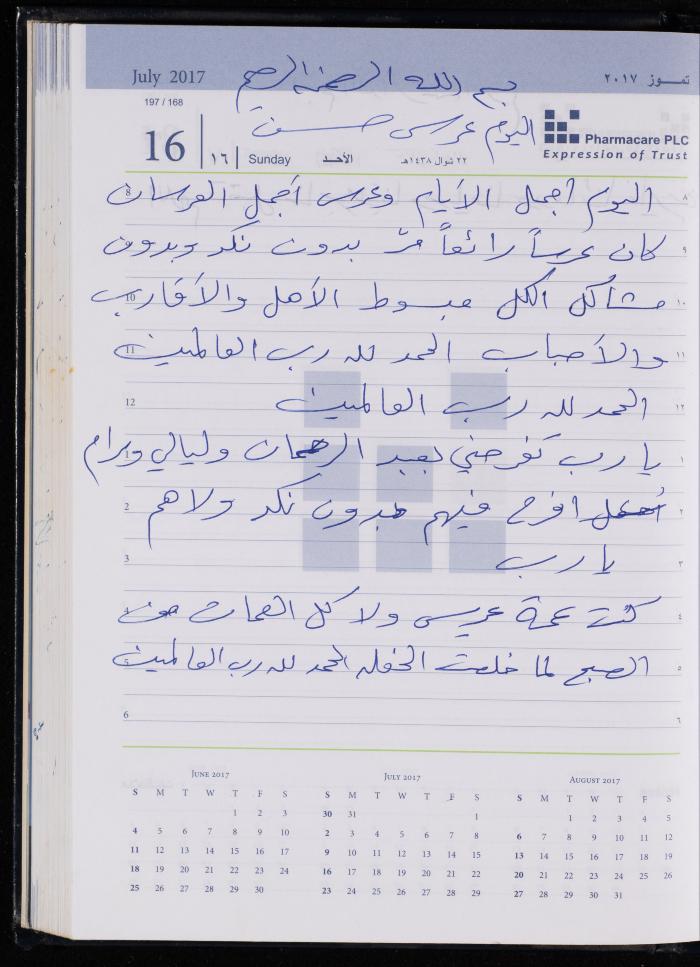 July 2017 بسم الله الرحمن الرحيم تمـــوز ٢٠١٧
197 / 168
اليوم عرس حسن
Pharmacare PLC
Expression of Trust
16 ١٦ Sunday الأحـد ٢٢ شوال ١٤٣٨هـ
8 اليوم أجمل الأيام وعرس أجمل العرسان ٨
كان عرساً رائعاً مرّ بدون نكد وبدون ٩
10 مشاكل الكل مبسوط الأهل والأقارب ١٠
11 والأحباب الحمد لله رب العالمين ١١
12 الحمد لله رب العالمين ١٢
1 يا رب تفرحني بعبد الرحمان وليالي ومرام ١
2 أفرح فيهم بدون نكد ولا هم ٢
3 يا رب ٣
كنت عمة عريس ولا كل العمات من ٤
الصبح لما خلصت الحفله الحمد لله رب العالمين ٥
6 ٦
June 2017
S M T W T F S
1 2 3
4 5 6 7 8 9 10
11 12 13 14 15 16 17
18 19 20 21 22 23 24
25 26 27 28 29 30
July 2017
S M T W T F S
30 31 1
2 3 4 5 6 7 8
9 10 11 12 13 14 15
16 17 18 19 20 21 22
23 24 25 26 27 28 29
August 2017
S M T W T F S
1 2 3 4 5
6 7 8 9 10 11 12
13 14 15 16 17 18 19
20 21 22 23 24 25 26
27 28 29 30 31